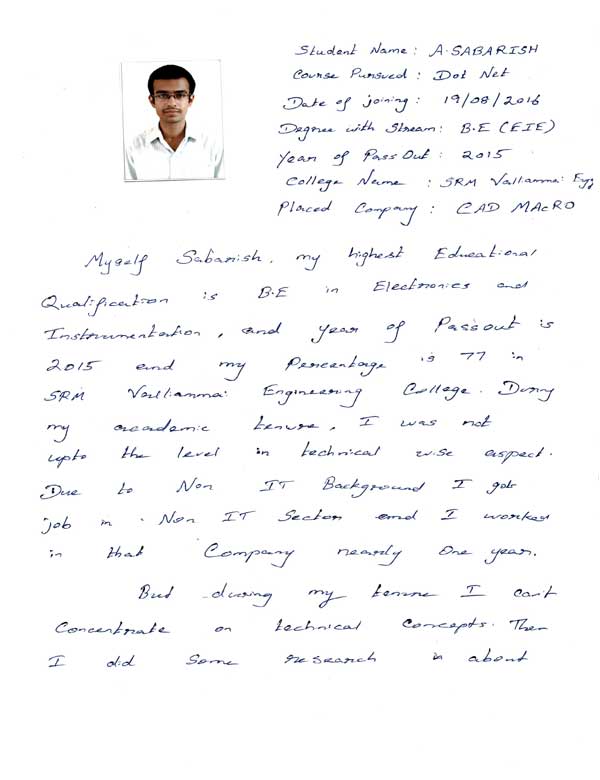 Student Name : A.SABARISH
Course Pursued : Dot Net
Date of joining : 19/08/2016
Degree with Stream : B.E (EIE)
Year of Pass Out : 2015
College Name : SRM Valliammai Engg
Placed Company : CAD MAcRO
Myself Sabarish, my highest Educational
Qualification is B.E in Electronics and
Instrumentation, and year of Passout is
2015 and my Percentage is 77 in
SRM Valliammai Engineering College. During
my academic tenure, I was not
upto the level in technical wise aspect.
Due to Non IT Background I got
job in Non IT Sector and I worked
in that Company nearly One year.
But during my tenure I can't
Concentrate on technical Concepts. Then
I did Some research in about